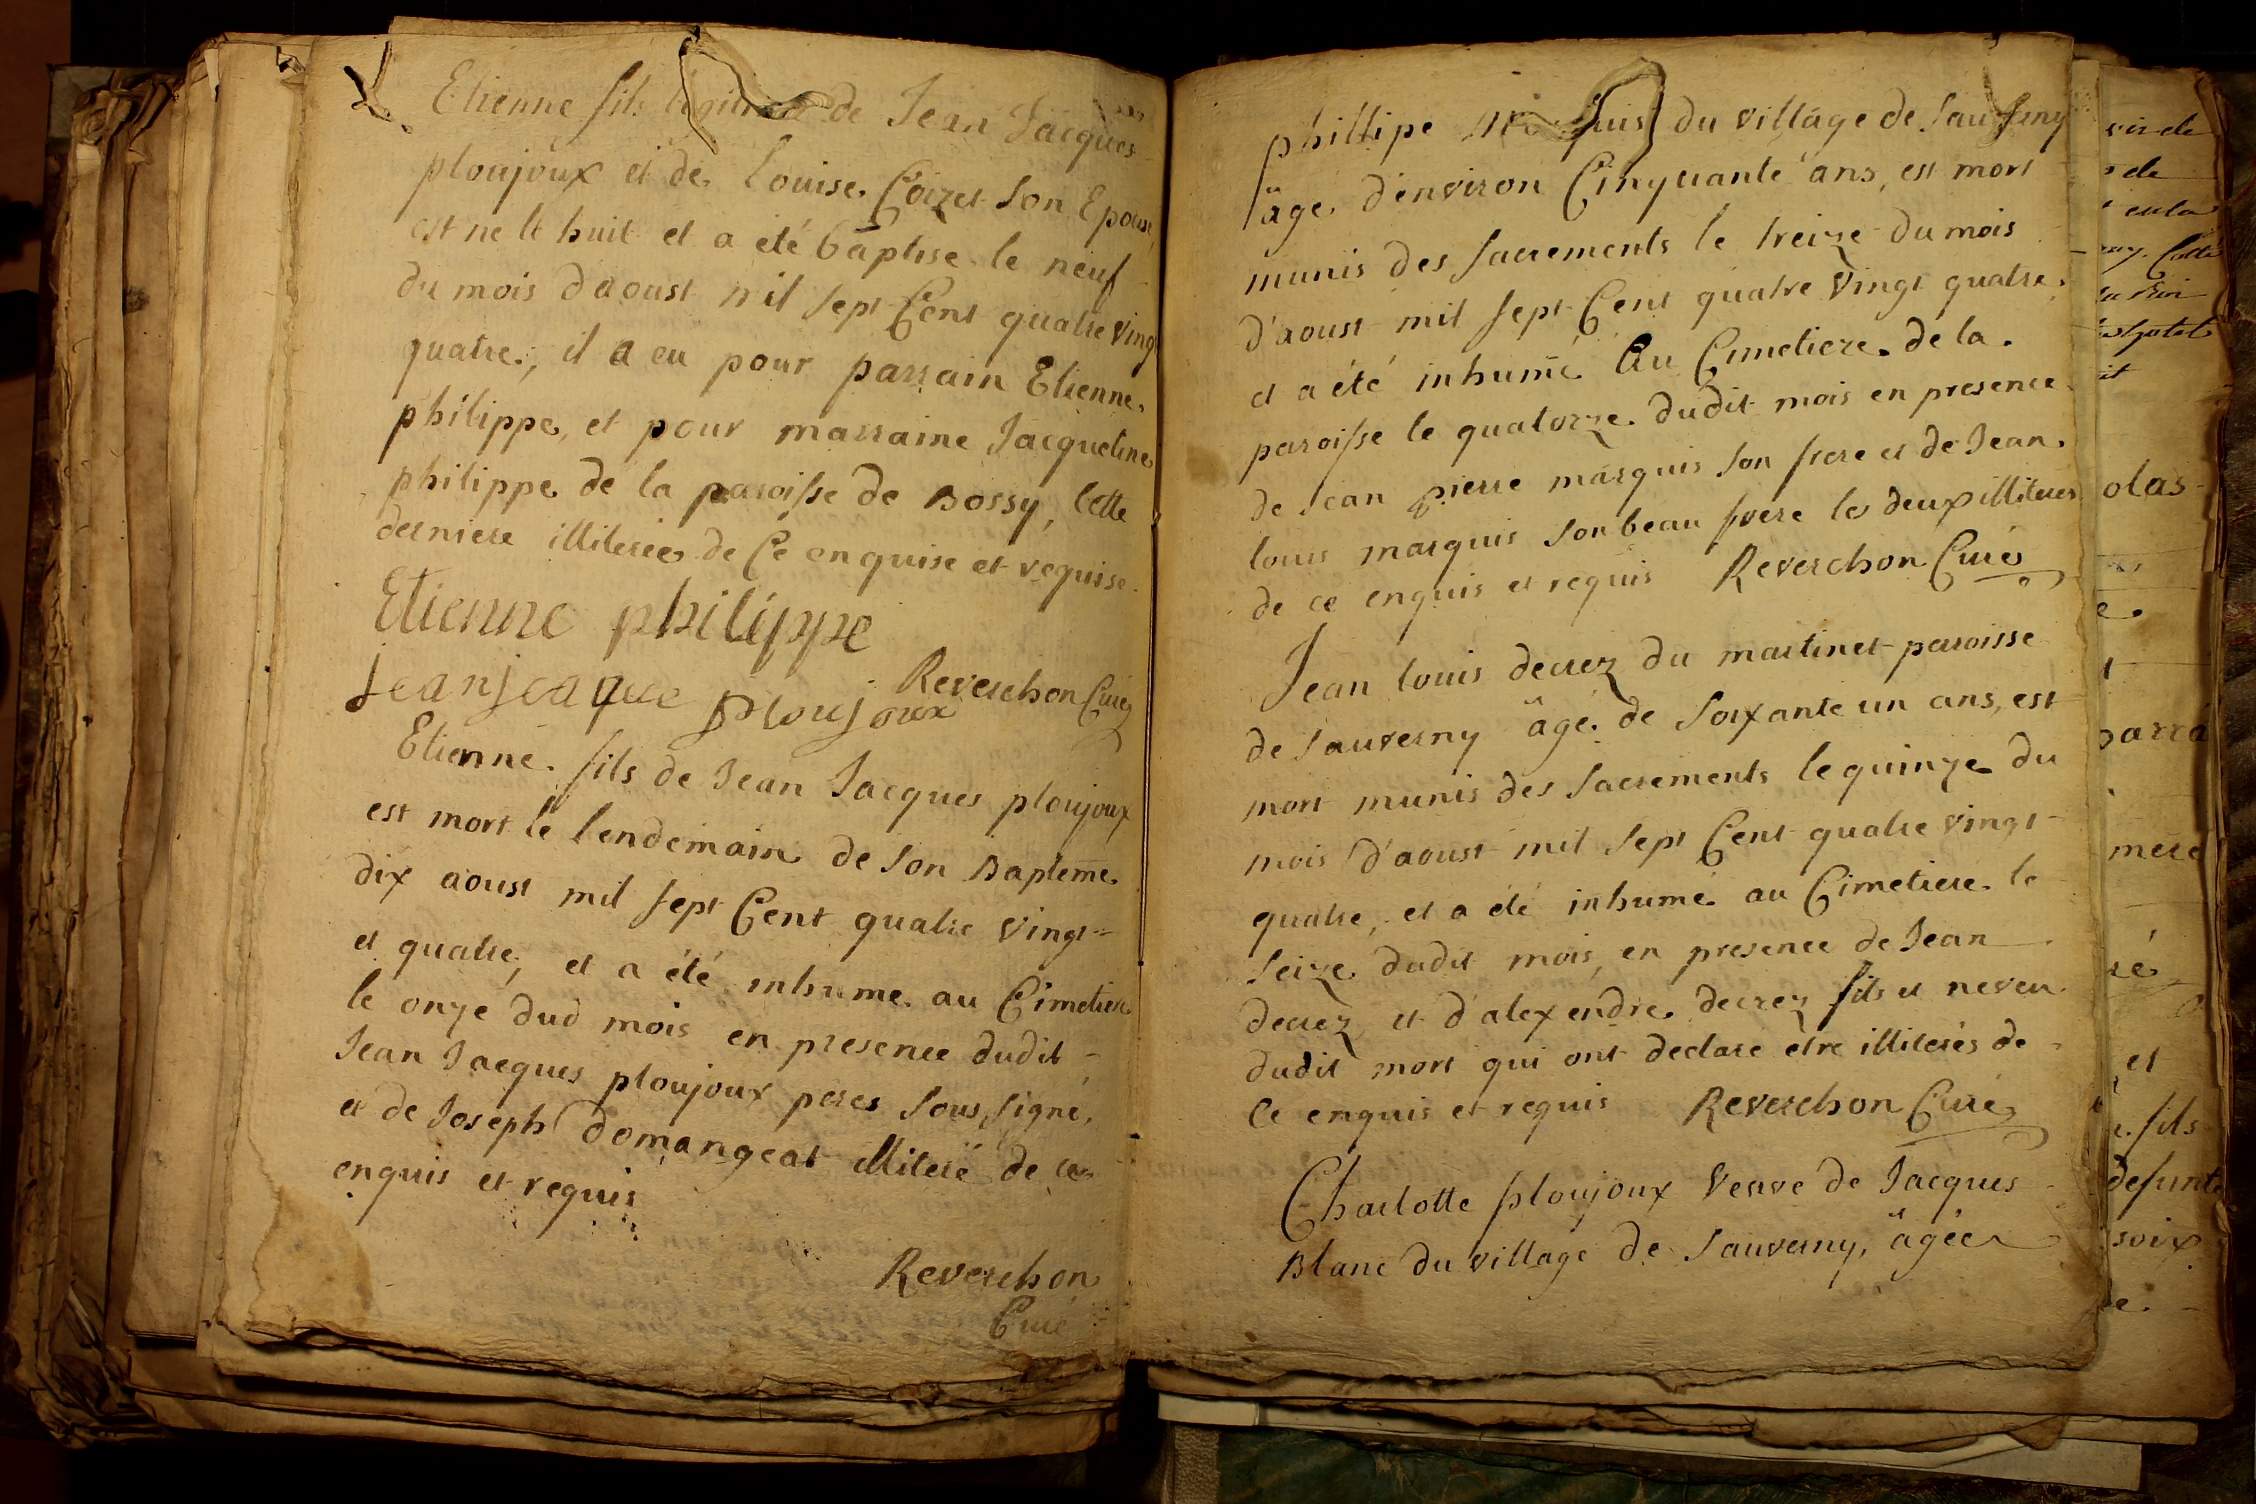 Etienne fils legitime de Jean Jacques
ploujoux et de Louise Coizet son Epouse,
est ne le huit et a eté baptise le neuf
du mois d'aoust mil sept Cent quatre ving
quatre, il a eu pour parrain Etienne
philippe, et pour marraine Jacqueline
philippe de la paroisse de Bossy, Cette
derniere illiterée de Ce enquise et requise.
Etienne philippe
jean jeaque ploujoux
Reverchon Curé
Etienne fils de Jean Jacques ploujoux
est mort le lendemain de son Bapteme
dix aoust mil sept Cent quatre vingt
et quatre, et a été inhume au Cimetiere
le onze dud mois en presence dudit
Jean Jacques ploujoux peres sous signé,
et de Joseph domangeat illiteré de ce
enquis et requis
Reverchon
Curé
phillipe du village de Sauverny
âgé d'environ Cinquante ans, est mort
munis des sacrements le treize du mois
d'aoust mil sept Cent quatre vingt quatre,
et a été inhumé Au Cimetiere de la
paroisse le quatorze dudit mois en presence
de Jean pierre marquis son frere et de Jean
louis marquis son beau frere les deux illiterés
de ce enquis et requis Reverchon Curé
Jean louis decrez du martinet paroisse
de Sauverny âgé de soixante un ans, est
mort munis des sacrements le quinze du
mois d'aoust mil sept Cent quatre vingt
quatre, et a été inhumé au Cimetiere le
seize dudit mois, en presence de Jean
decrez et d'alexendre decrez fils et neveu
dudit mort qui ont declare etre illiterés de
Ce enquis et requis Reverchon Curé
Charlotte ploujoux Veuve de Jacques
Blanc du village de Sauverny, âgée
olas
parra
mere
et
fils
defunte
soix